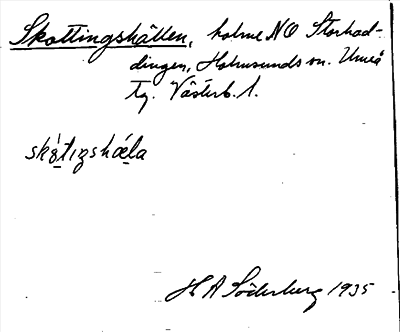 Skottingshällen, holme NO Storhad-
dingen, Holmsunds sn. Umeå
tg. Västerb. l.
skò̱tıŋshæ̱la
H A Söderberg 1935